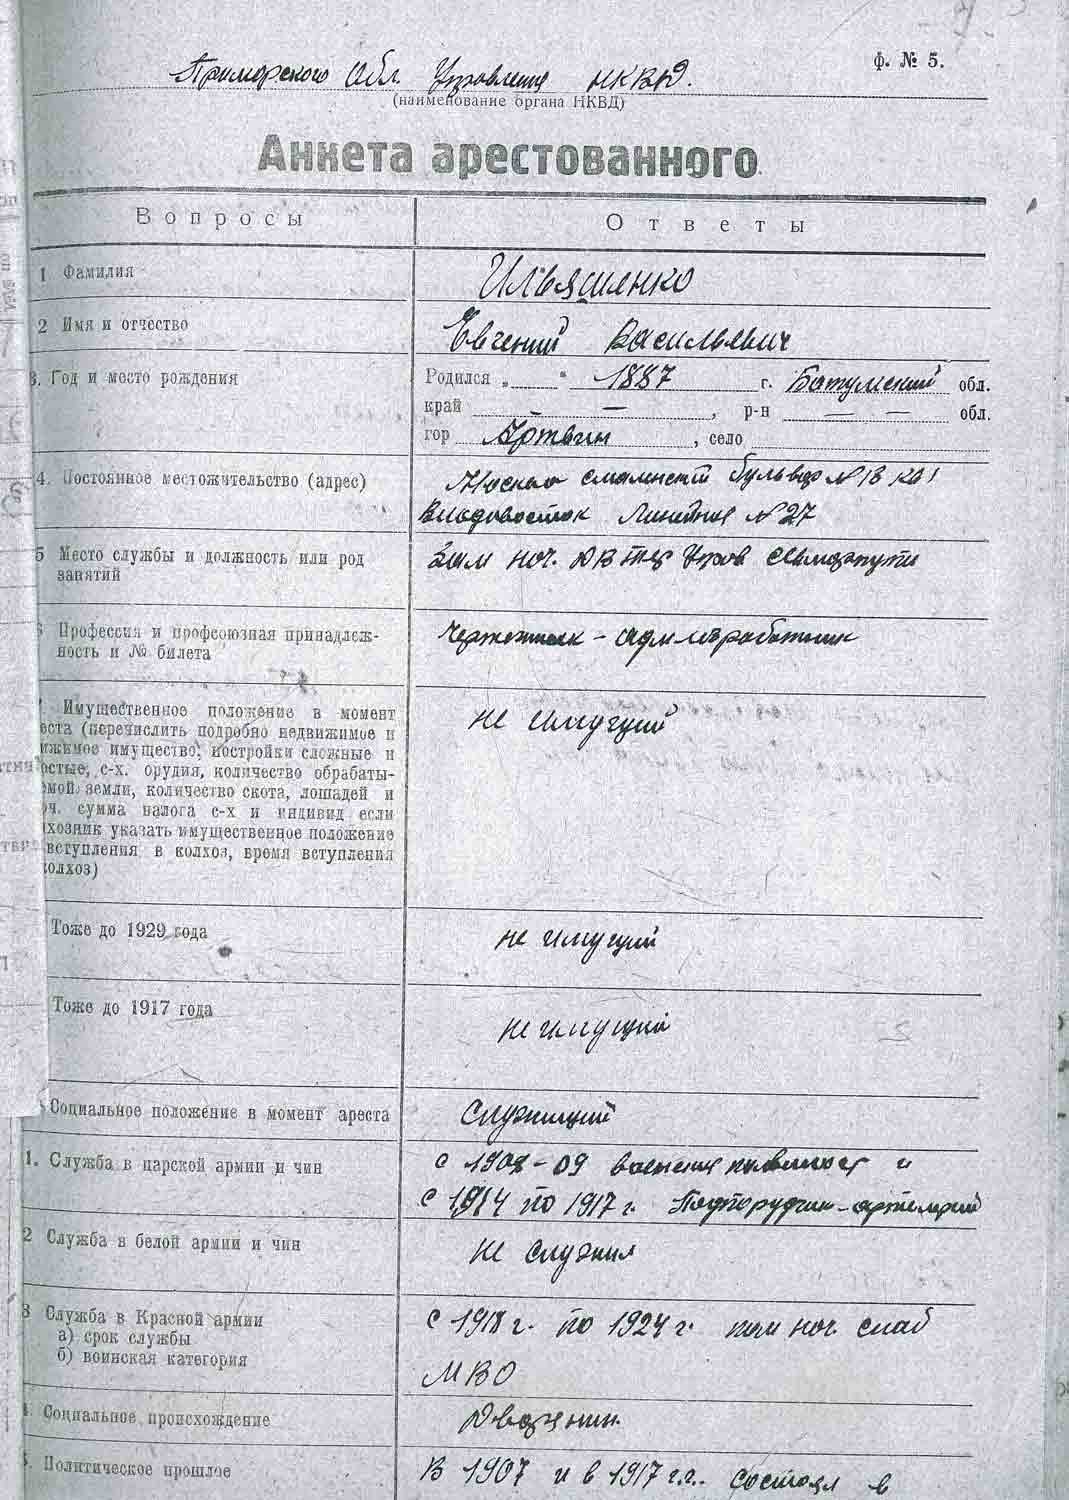 ф. № 5.
Приморского Обл. Управления НКВД.
(наименование органа НКВД)
Анкета арестованного.
Вопросы
Ответы
1 Фамилия
Ильяшенко
2 Имя и отчество
Евгений Васильевич
3. Год и место рождения
Родился „ " 1887 г. Батумский обл.
край — , р-н — — обл.
гор Артвин , село
4. Постоянное местожительство (адрес)
Москва Смоленский бульвар № 13 кв 1
Владовосток Линейная № 27
5 Место службы и должность или род
занятий
Зам нач. ДВ
6 Профессия и профсоюзная принадлеж-
ность и № билета
Чертежник - админработник
Имущественное положение в момент
еста (перечислить подробно недвижимое и
ижимое имущество: постройки сложные и
остые, с-х. орудия, количество обрабаты-
емой земли, количество скота, лошадей и
оч. сумма налога с-х и индивид если
хозник указать имущественное положение
вступления в колхоз, время вступления
колхоз)
не имущий
Тоже до 1929 года
не имущий
Тоже до 1917 года
не имущий
Социальное положение в момент ареста
Служищий
1. Служба в царской армии и чин
с 1908-09 и
с 1914 по 1917 г. Подпоручик-артилерии
2 Служба в белой армии и чин
не служил
3 Служба в Красной армии
а) срок службы
б) воинская категория
с 1918 г. по 1924 г. пом нач снаб
МВО
4. Социальное происхождение
Дворянин.
5. Политическое прошлое
В 1907 и в 1917 г.г. состоял в